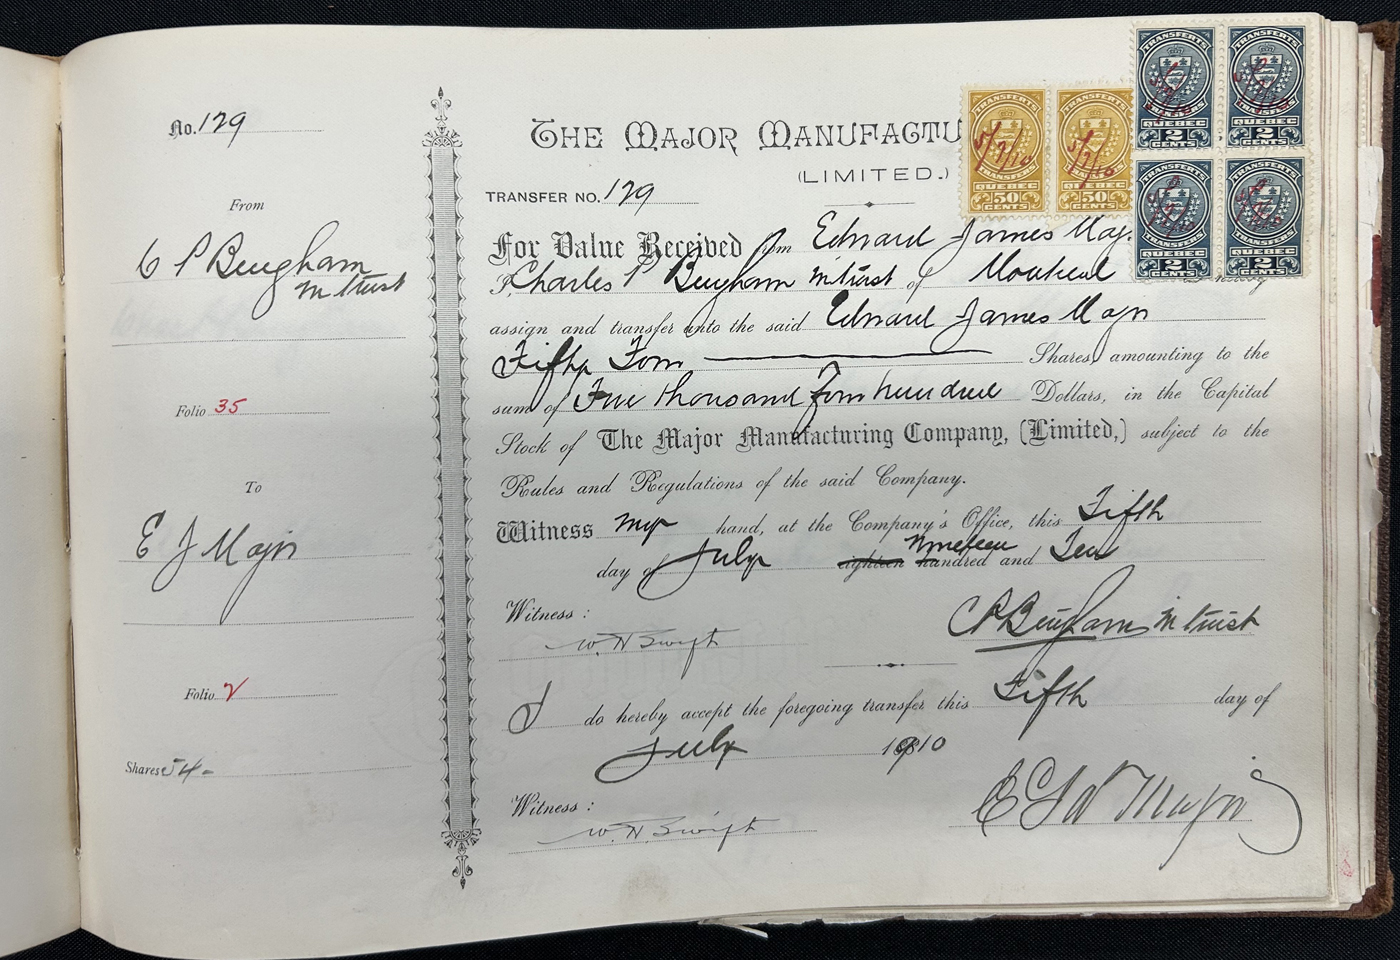 No. 179
From
C P Bingham
in trust
Folio 35
To
E J Major
Folio 2
Shares 54-
THE MAJOR MANUFACTU
(LIMITED.)
TRANSFER NO. 179
For Value Received from Edward James Maj
I, Charles P Bingham in trust of Montreal hereby
assign and transfer unto the said Edward James Major
Fifty Four Shares, amounting to the
sum of Five thousand four hundred Dollars, in the Capital
Stock of The Major Manufacturing Company, (Limited,) subject to the
Rules and Regulations of the said Company.
Witness my hand, at the Company's Office, this Fifth
day of July eighteen Nineteen hundred and Ten
Witness:
W. H. Swift
C P Bingham in trust
I do hereby accept the foregoing transfer this Fifth day of
July 1910
Witness:
W. H. Swift
Major
TRANSFERTS
TRANSFERS
QUEBEC
50
CENTS
5/7/10
TRANSFERTS
TRANSFERS
QUEBEC
50
CENTS
5/7/10
TRANSFERTS
TRANSFERS
QUEBEC
2
CENTS
TRANSFERTS
TRANSFERS
QUEBEC
2
CENTS
TRANSFERTS
TRANSFERS
QUEBEC
2
CENTS
TRANSFERTS
TRANSFERS
QUEBEC
2
CENTS